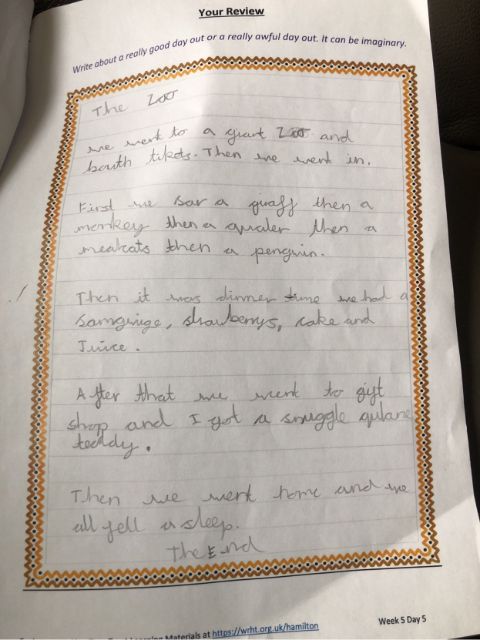 Your Review
Write about a really good day out or a really awful day out. It can be imaginary.
The Zoo
we went to a giant Zoo and
bouth tikets. Then we went in.
First we sor a giraff then a
monkey then a qualer then a
meakats then a penguin.
Then it was dinner time we had a
samgwige, strawberrys, cake and
Juice.
After that we went to gift
shop and I got a snuggle
teddy.
Then we went home and we
all fell a sleep.
The End
Materials at https://wrht.org.uk/hamilton
Week 5 Day 5